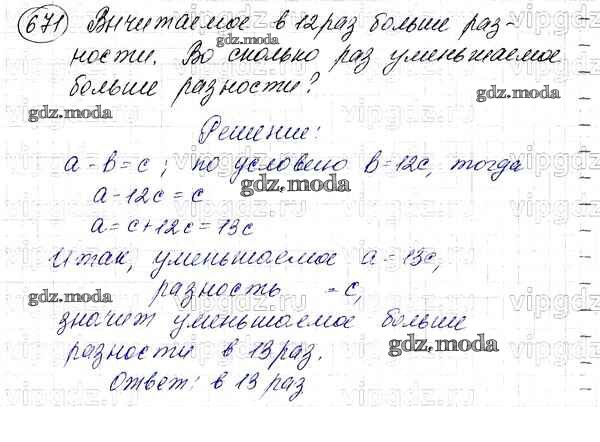 671 Вычитаемое в 12 раз больше раз-
ности. Во сколько раз уменьшаемое
больше разности?
Решение:
a - в = c ; по условию в = 12c, тогда
a - 12c = c
a = c + 12c = 13c
Итак, уменьшаемое a = 13c,
разность = c,
значит уменьшаемое больше
разности в 13 раз.
Ответ: в 13 раз
gdz.moda
gdz.moda
gdz.moda
gdz.moda
gdz.moda
gdz.moda
vipgdz.ru